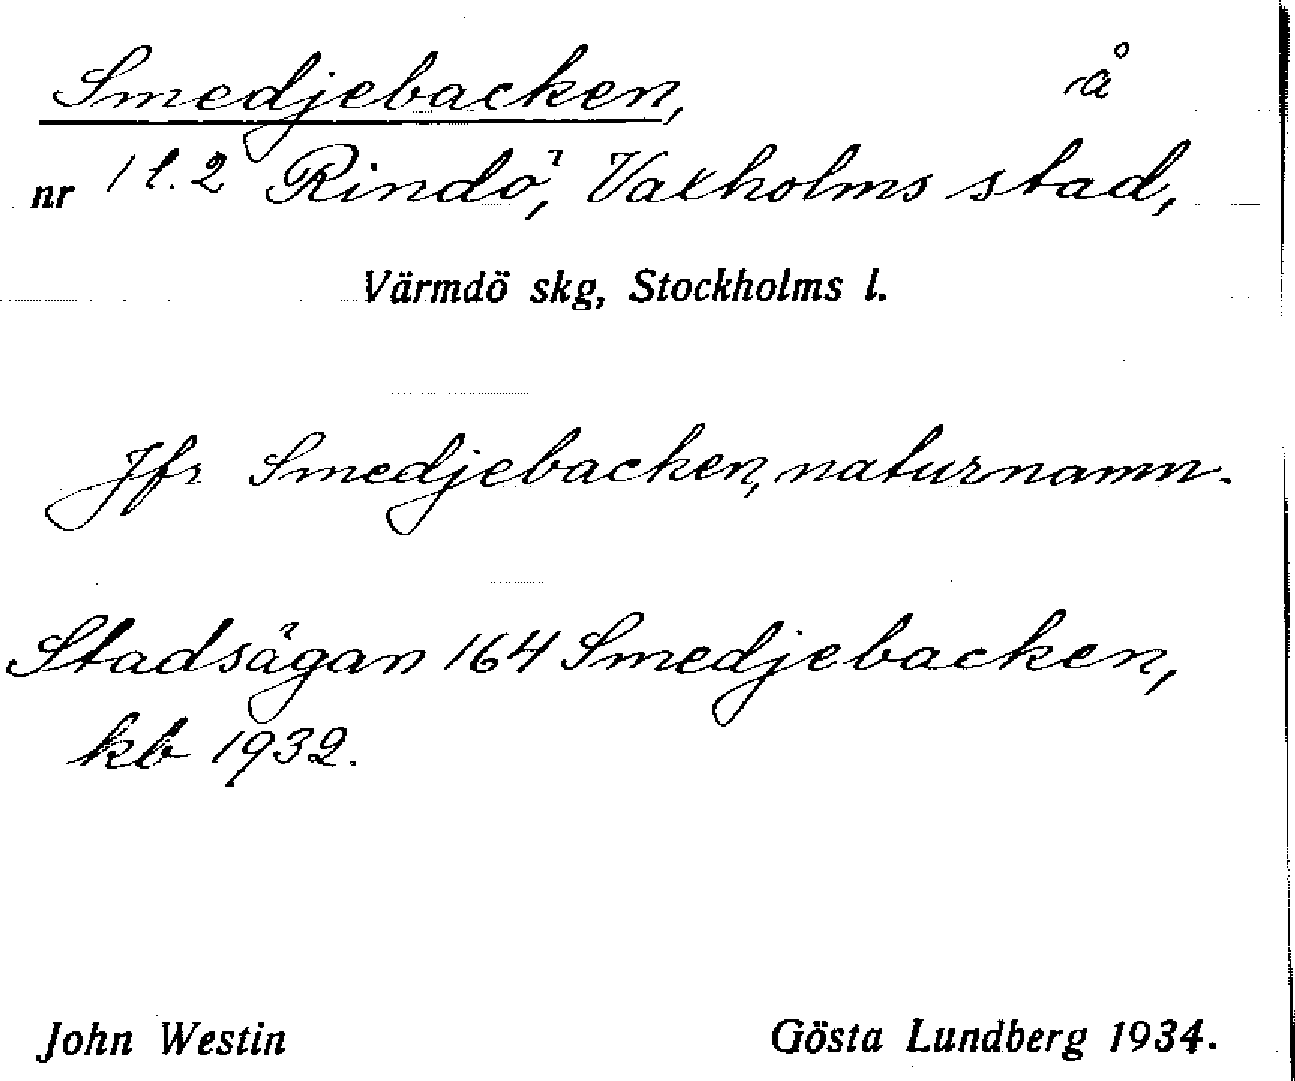 Smedjebacken, å
nr 1 l. 2 Rindö, Vaxholms stad,
Värmdö skg, Stockholms l.
Jfr Smedjebacken, naturnamn.
Stadsägan 164 Smedjebacken,
kb 1932.
John Westin Gösta Lundberg 1934.